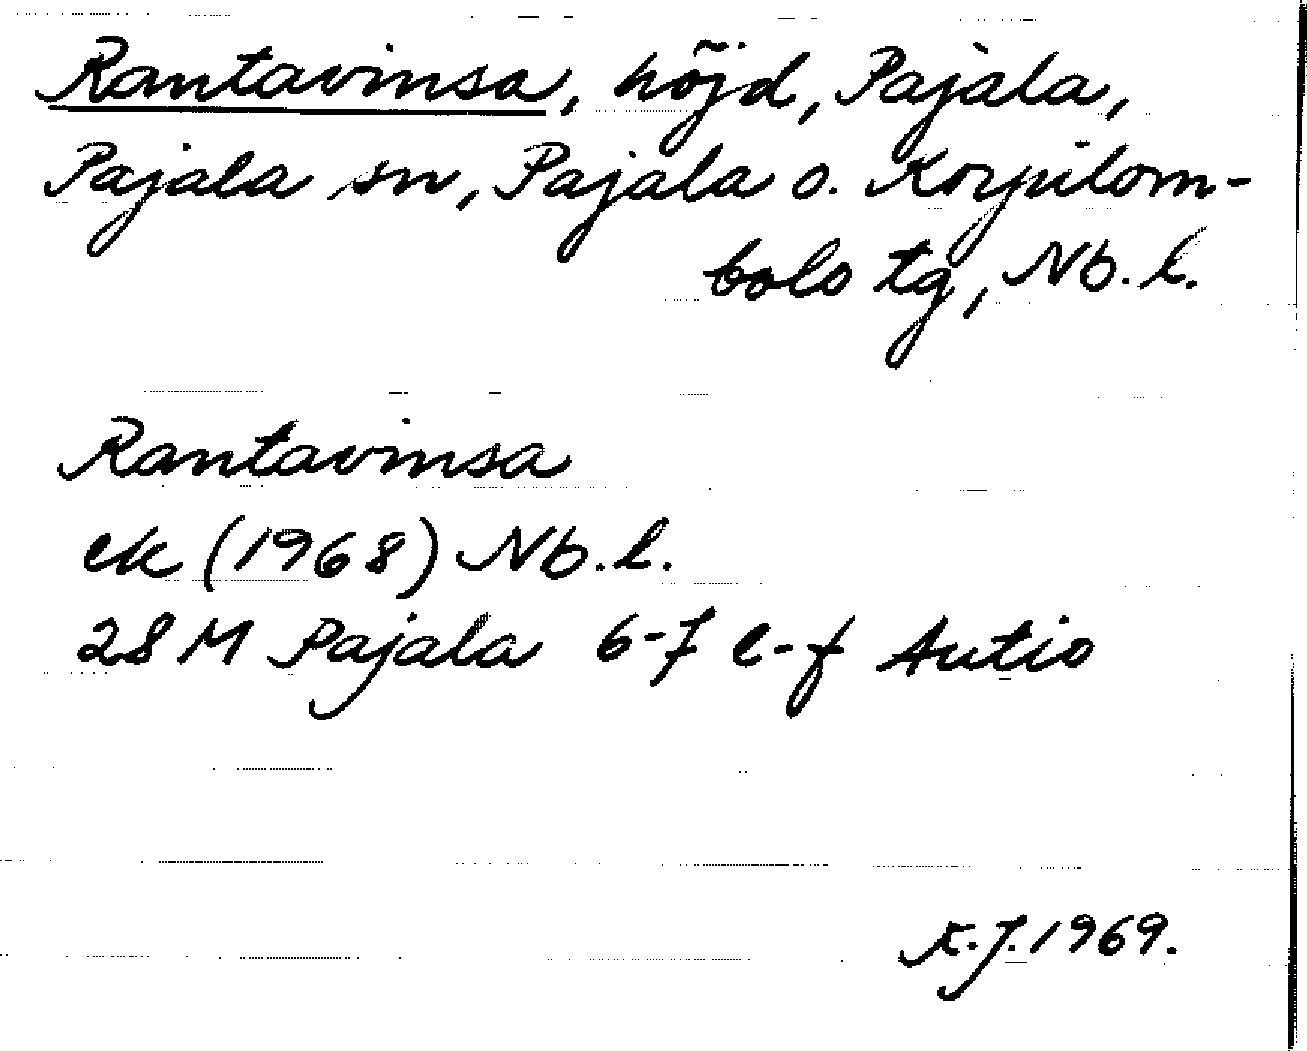 Rantavinsa, höjd, Pajala,
Pajala sn, Pajala o. Korpilom-
bolo tg, Nb.l.
Rantavinsa
ek (1968) Nb.l.
28 M Pajala 6-7 e-f Autio
K.J. 1969.